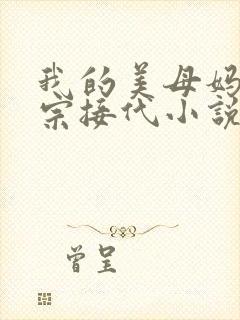 我的美母妈
宗接代小説
曾呈